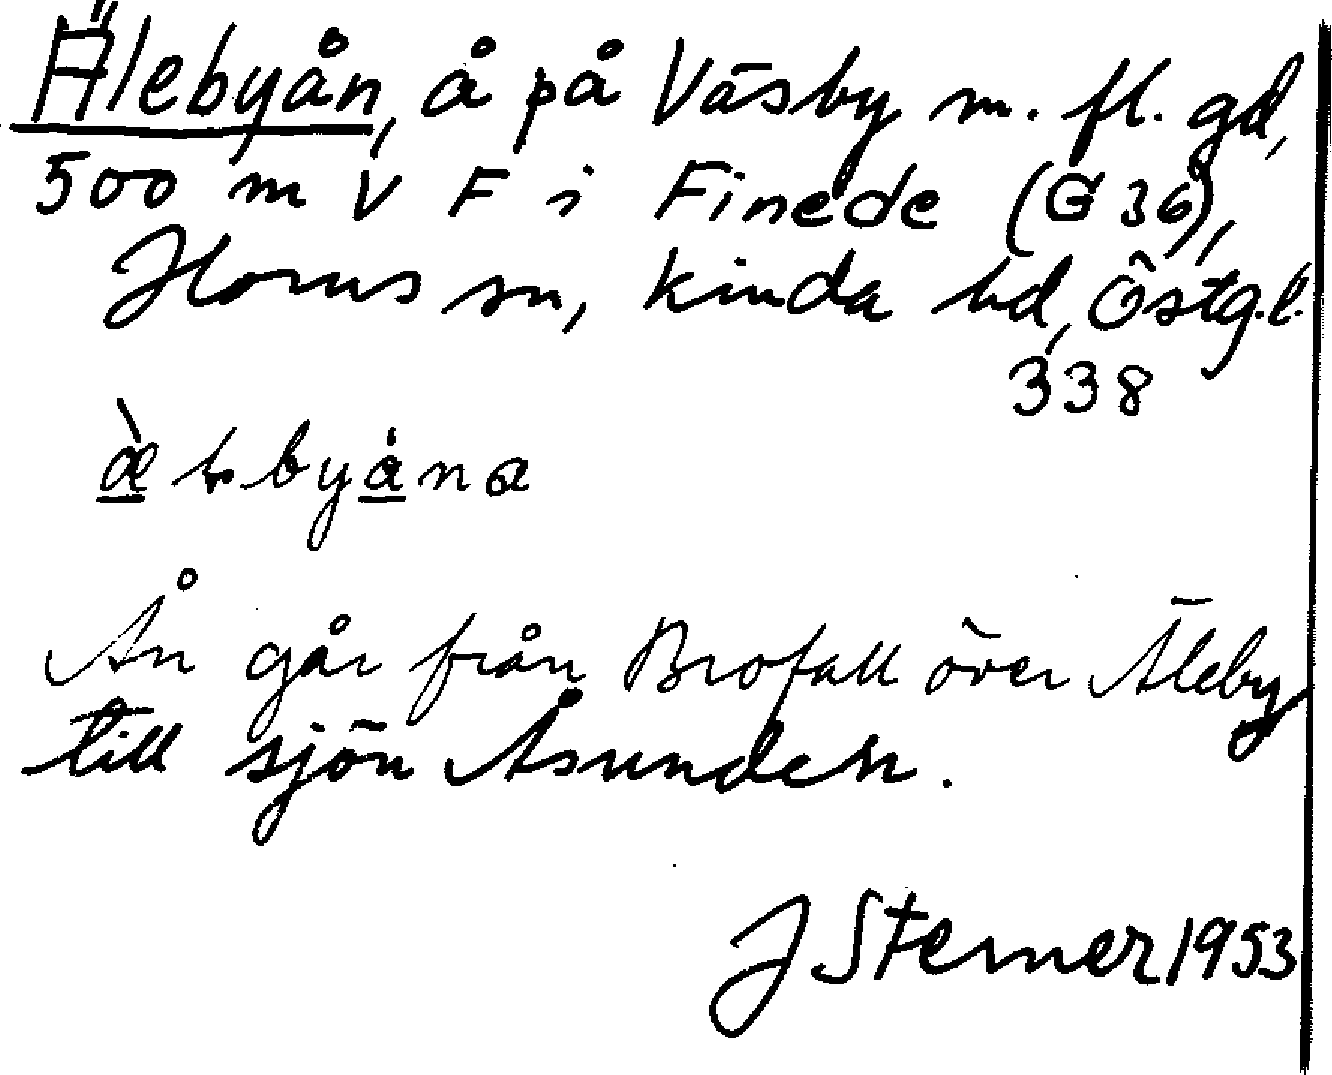 Älebyån, å på Väsby m. fl. gd,
500 m V F i Finede (G 36),
Horns sn, Kinda hd, Östg.l.
338
Ån går från Brofall över Äleby
till sjön Åsunden.
J Sterner 1953